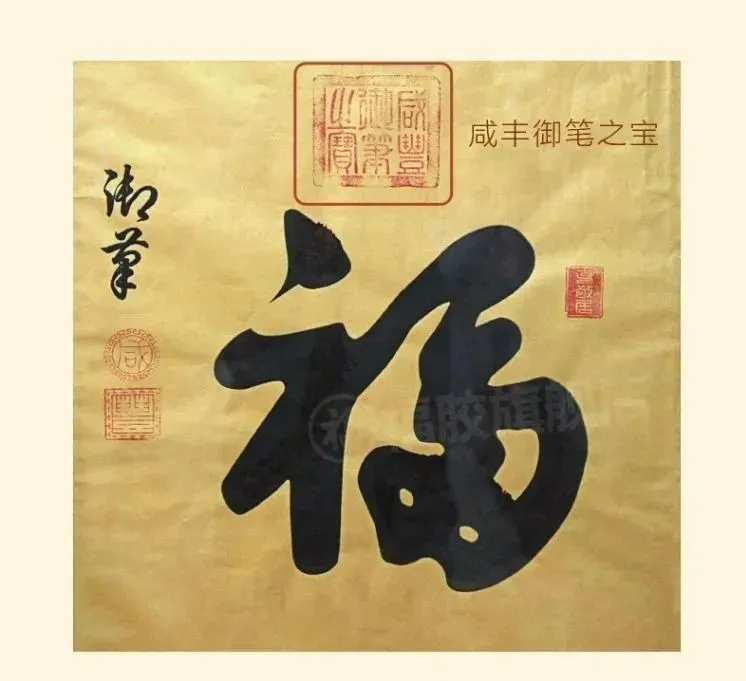 咸豐御筆之寶
咸丰御笔之宝
御筆
咸
豐
福
福胶旗舰店